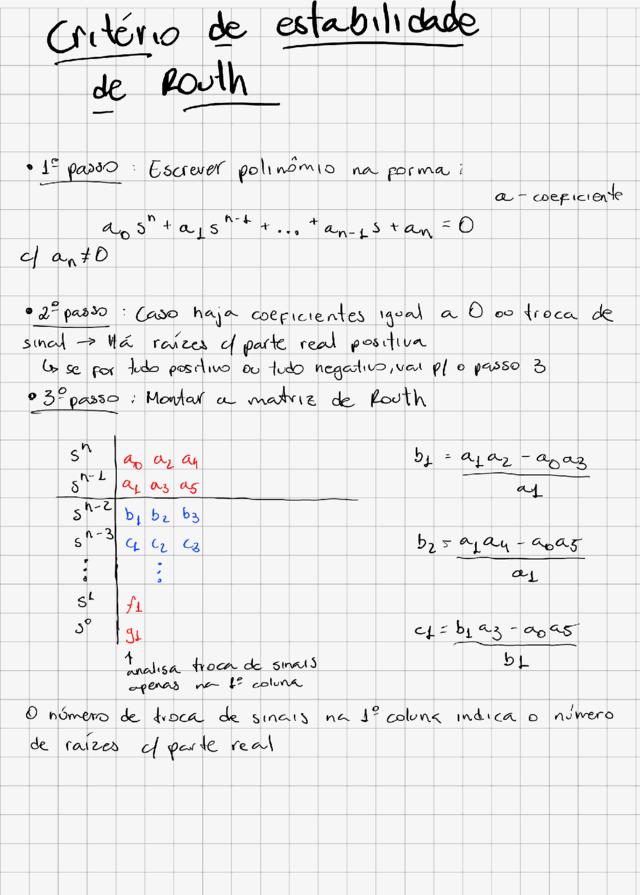 Critério de estabilidade
de Routh
• 1º passo : Escrever polinômio na forma :
a - coeficiente
a₀ sⁿ + a₁ sⁿ⁻¹ + ... + aₙ₋₁ s + aₙ = 0
c/ aₙ ≠ 0
• 2º passo : Caso haja coeficientes igual a 0 ou troca de
sinal → Há raízes c/ parte real positiva
↳ se for tudo positivo ou tudo negativo, vai p/ o passo 3
• 3º passo : Montar a matriz de Routh
sⁿ a₀ a₂ a₄
sⁿ⁻¹ a₁ a₃ a₅
sⁿ⁻² b₁ b₂ b₃
sⁿ⁻³ c₁ c₂ c₃
⋮ ⋮
s¹ f₁
s⁰ g₁
↑
analisa troca de sinais
apenas na 1º coluna
b₁ = a₁a₂ - a₀a₃
a₁
b₂ = a₁a₄ - a₀a₅
a₁
c₁ = b₁a₃ - a₀a₅
b₁
O número de troca de sinais na 1º coluna indica o número
de raízes c/ parte real